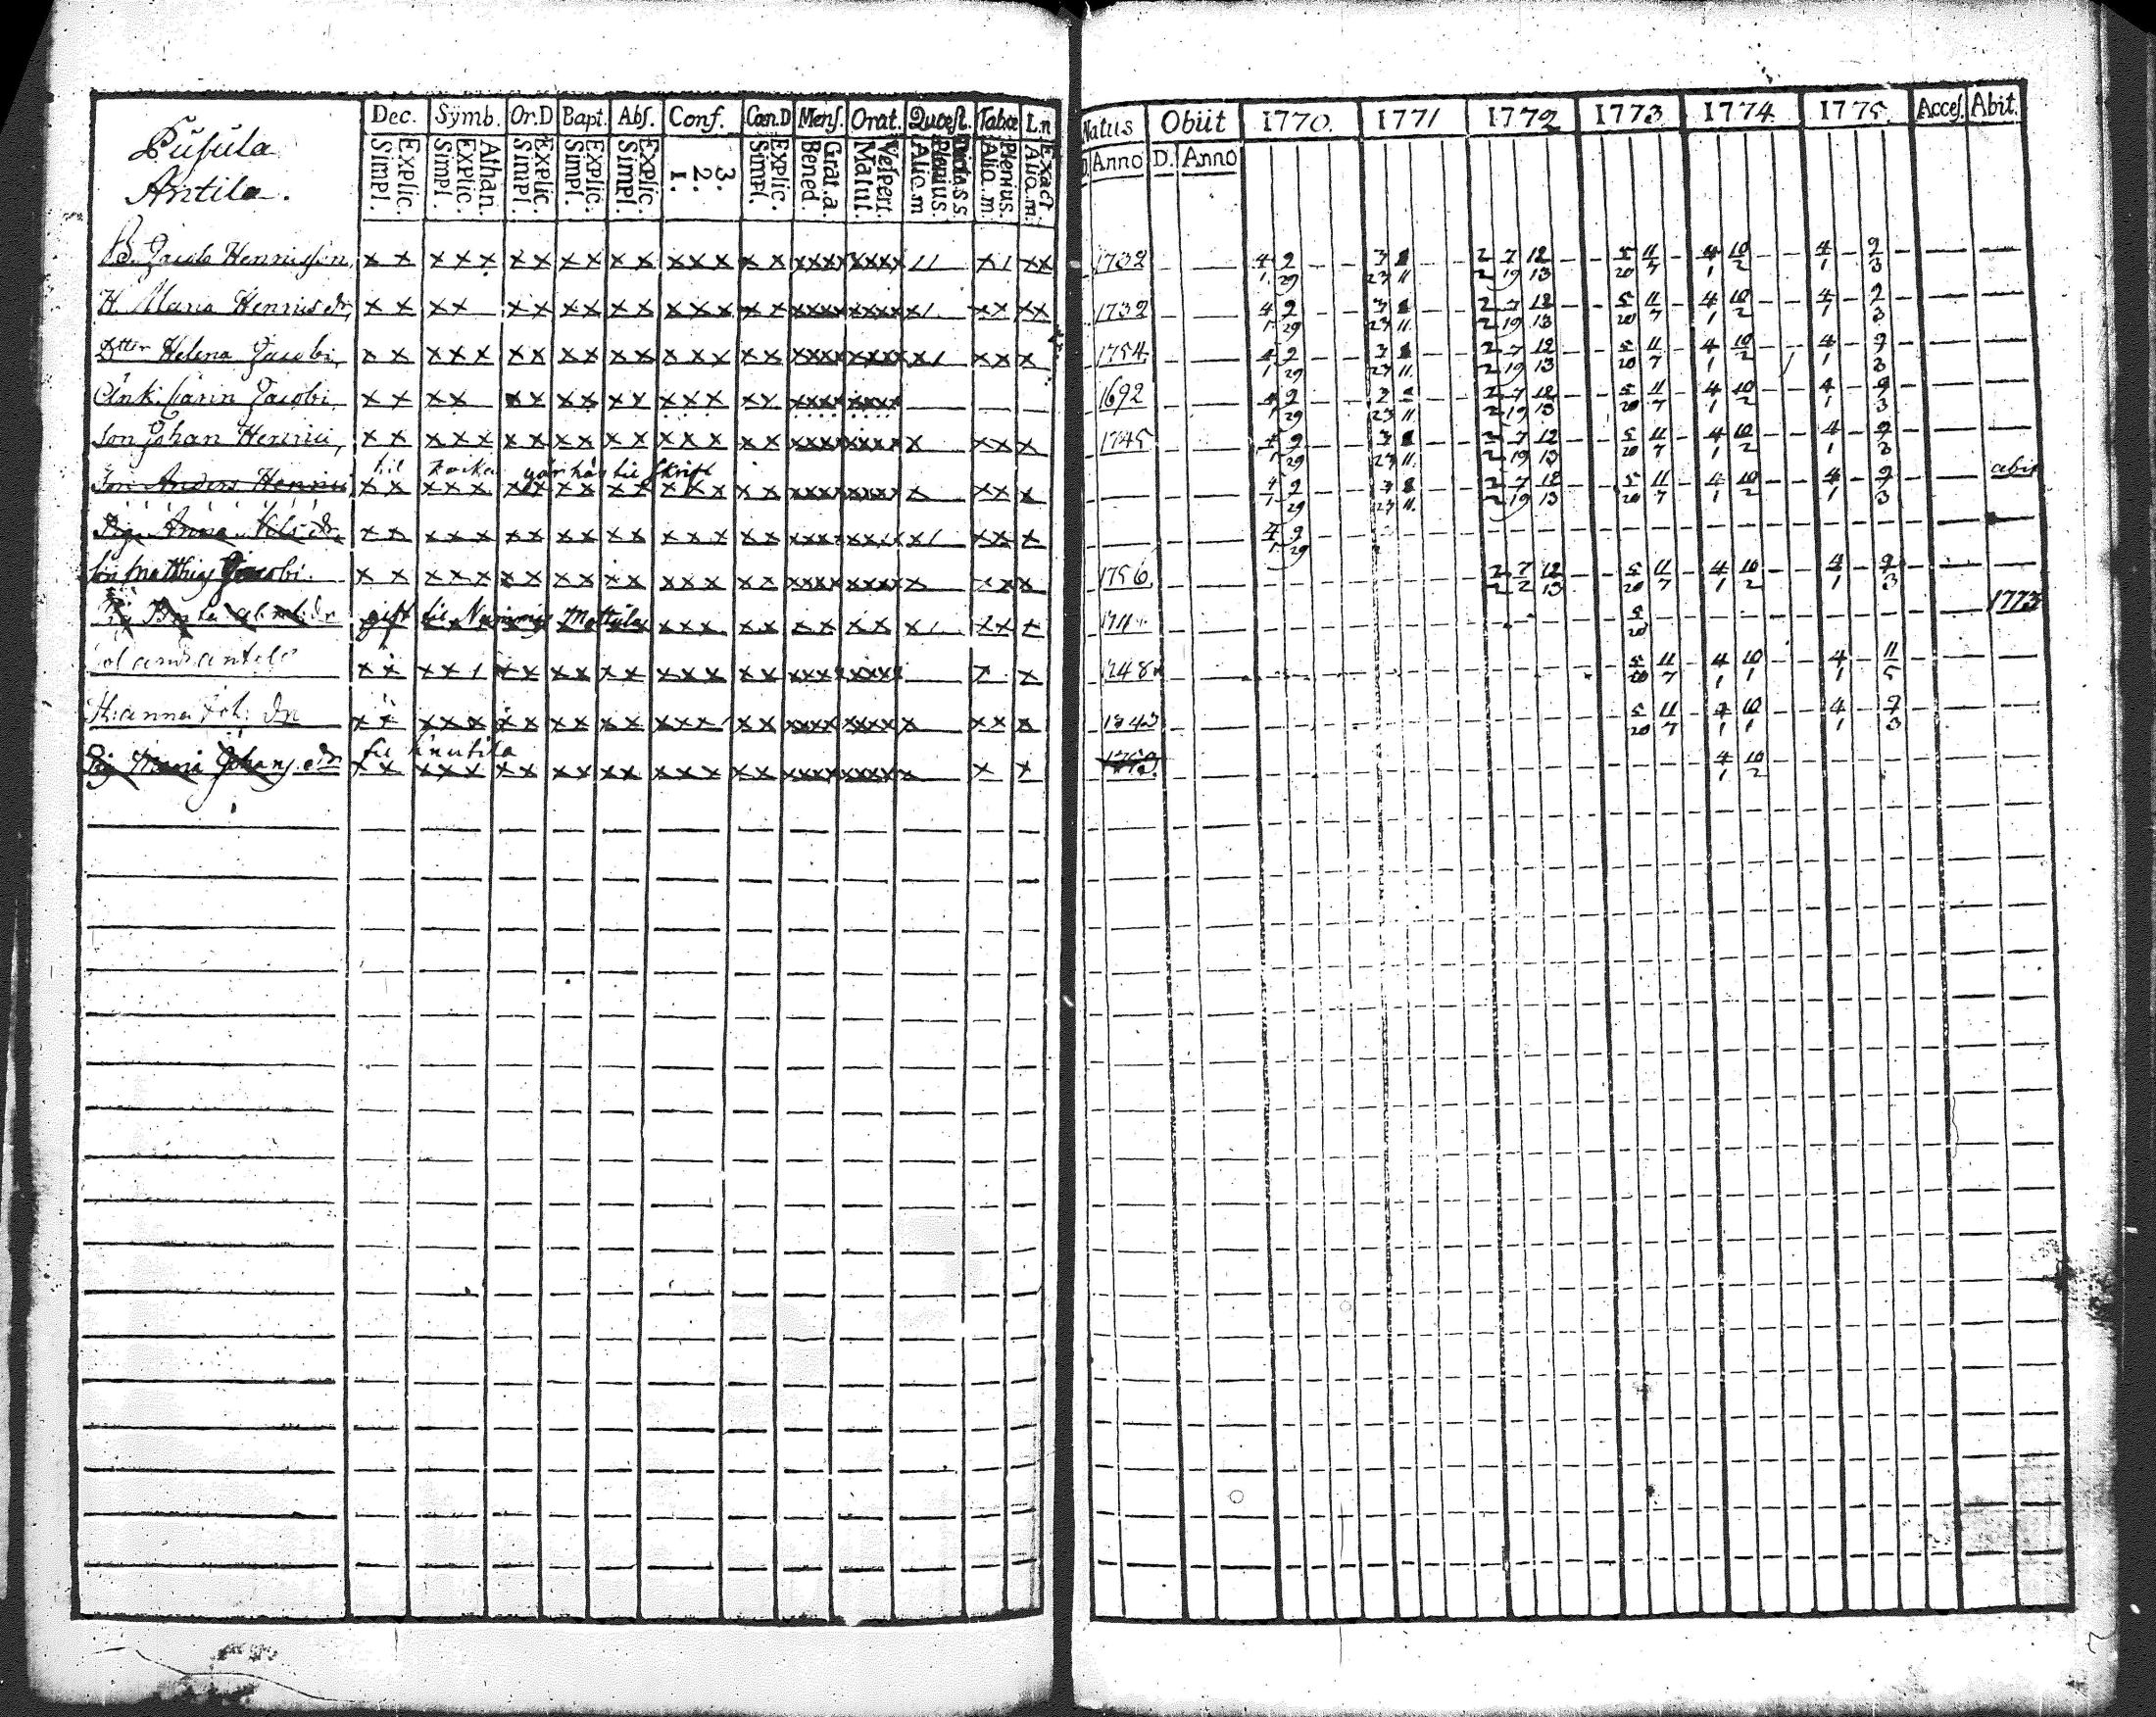 Pusula
Antila.
Dec. Symb. Or.D Bapt. Abs. Conf. Cœn.D Mens. Orat. Quœst. Tabœ L.n
Explic. Simpl. Athan. Explic. Simpl. Explic. Simpl. Explic. Simpl. Explic. Simpl. 3. 2. 1. Explic. Simpl. Grat. a. Bened. Vespert. Matut. Dicta S S Plenius. Alio. m Plenius. Alio. m. Exact. Alio. m.
Natus Obiit 1770. 1771 1772 1773 1774 1775. Acces. Abit.
D. Anno D. Anno
B. Jacob Henriksson, x x x x x x x x x x x x x x x x xxxx xxxx 11 x 1 x x 1732 4/1 9/29 3/23 8/11 2/2 7/19 12/13 5/20 11/7 4/1 10/2 4/1 9/3
H. Maria Henriks dr, x x x x x x x x x x x x x x x xxxx xxxx x 1 x x x x 1732 4/1 9/29 3/23 8/11 2/2 7/19 12/13 5/20 11/7 4/1 10/2 4/1 9/3
Dtter Helena Jacobi, x x x x x x x x x x x x x x x x xxxx xxxx x 1 x x x 1754 4/1 9/29 3/23 8/11 2/2 7/19 12/13 5/20 11/7 4/1 10/2 4/1 9/3
Änk. Carin Jacobi x x x x x x x x x x x x x x x xxxx xxxx 1692 4/1 9/29 3/23 8/11 2/2 7/19 12/13 5/20 11/7 4/1 10/2 4/1 9/3
Son Johan Henrici, x x x x x x x x x x x x x x x x xxxx xxxx x x x x 1745 4/1 9/29 3/23 8/11 2/2 7/19 12/13 5/20 11/7 4/1 10/2 4/1 9/3
til går här til skrift
Son Anders Henrici x x x x x x x x x x x x x x x x xxxx xxxx x x x x 4/1 9/29 3/23 8/11 2/2 7/19 12/13 5/20 11/7 4/1 10/2 4/1 9/3 abit
Pig. Anna dr. x x x x x x x x x x x x x x x x xxxx xxxx x 1 x x x 4/1 9/29
Son Matthias Jacobi. x x x x x x x x x x x x x x x x xxxx xxxx x x x x 1756 2/2 7/2 12/13 5/20 11/7 4/1 10/2 4/1 9/3
gift til Nummis Mattila x x x x x x x x 1 x x x 5/20 1773
x x x x 1 x x x x x x x x x x x xxxx xxxx x x 1748 5/20 11/7 4/1 10/1 4/1 11/5
H: anna dr x x x x x x x x x x x x x x x x xxxx xxxx x x x x 1743 5/20 11/7 4/1 10/1 4/1 9/3
til Knutila
Pig Maria Johans dr x x x x x x x x x x x x x x x x xxxx xxxx x x x 4/1 10/2